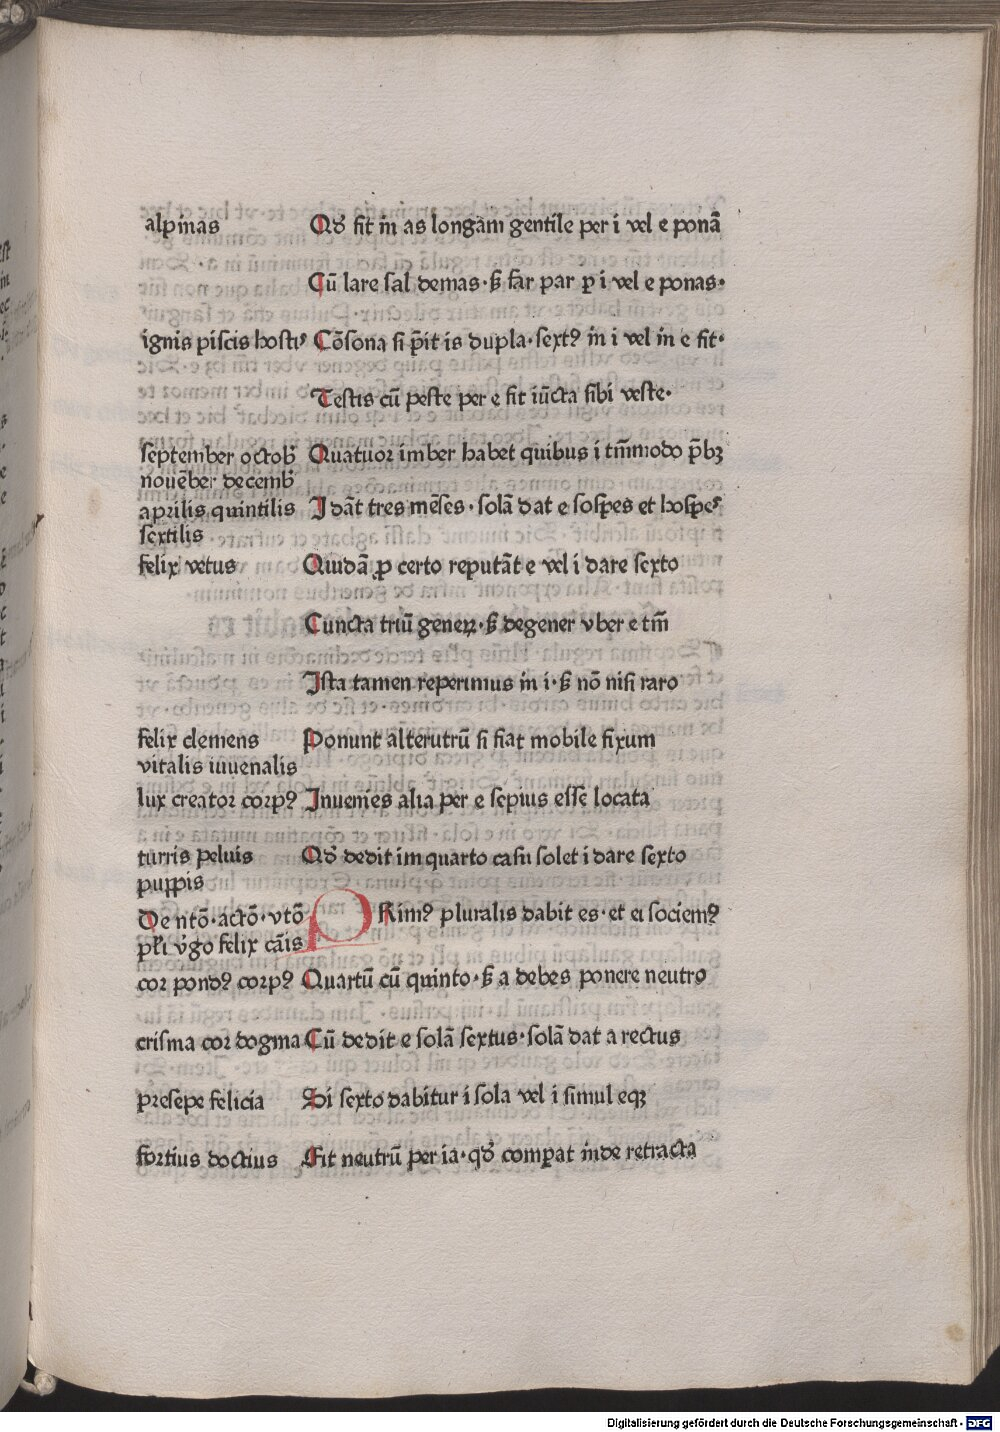 alpinas Qđ fit in as longam gentile per i vel e ponā
Cū lare sal demas·s̄ far par ꝑ i vel e ponas·
ignis piscis hostiꝰ Cōsona si p̄it is dupla·sextꝰ in i vel in e fit·
Testis cū peste per e fit iūcta sibi veste·
september octob̄ Quatuor imber habet quibus i tm̄modo p̄bꝫ
nouēber decemb̄
aprilis quintilis I dāt tres mēses·solā dat e sospes et hospes
sextilis
felix vetus Quidā ꝓ certo reputāt e vel i dare sexto
Cuncta triū generꝝ·s̄ degener vber e tm̄
Ista tamen reperimus in i·s̄ nō nisi raro
felix clemens Ponunt alterutrū si fiat mobile fixum
vitalis iuuenalis
lux creator corpꝰ Inuenies alia per e sepius esse locata
turris peluis Qđ dedit im quarto casu solet i dare sexto
puppis
De ntō·actō·vtō PRimꝰ pluralis dabit es·et ei sociemꝰ
płi v̄go felix cāis
cor pondꝰ corpꝰ Quartū cū quinto·s̄ a debes ponere neutro
crisma cor dogma Cū dedit e solā sextus·solā dat a rectus
presepe felicia Si sexto dabitur i sola vel i simul eqꝫ
fortius doctius Fit neutrū per ia·qđ compat inde retracta
Digitalisierung gefördert durch die Deutsche Forschungsgemeinschaft - DFG